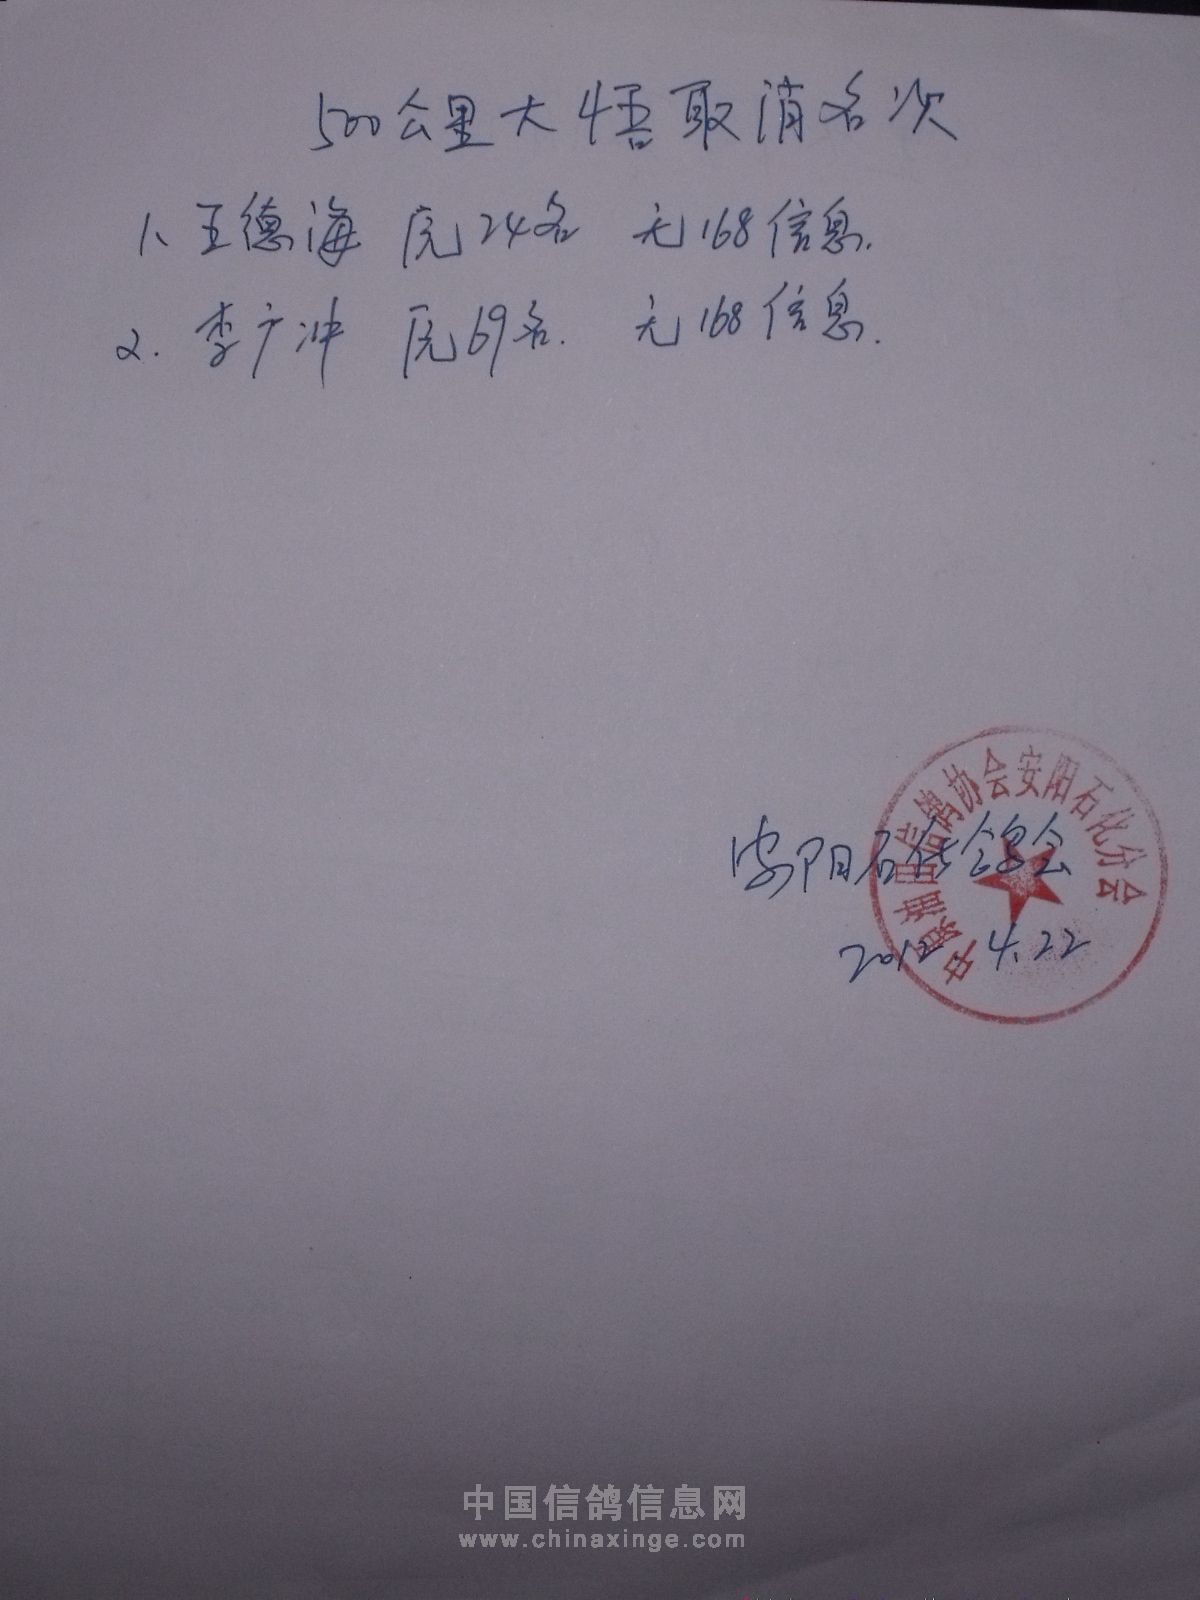 500公里大悟取消名次
1、王德海 原24名 无168信息.
2. 李广冲 原69名. 无168信息.
中原油田信鸽协会安阳石化分会
安阳石化鸽会
2012.4.22
中国信鸽信息网
www.chinaxinge.com